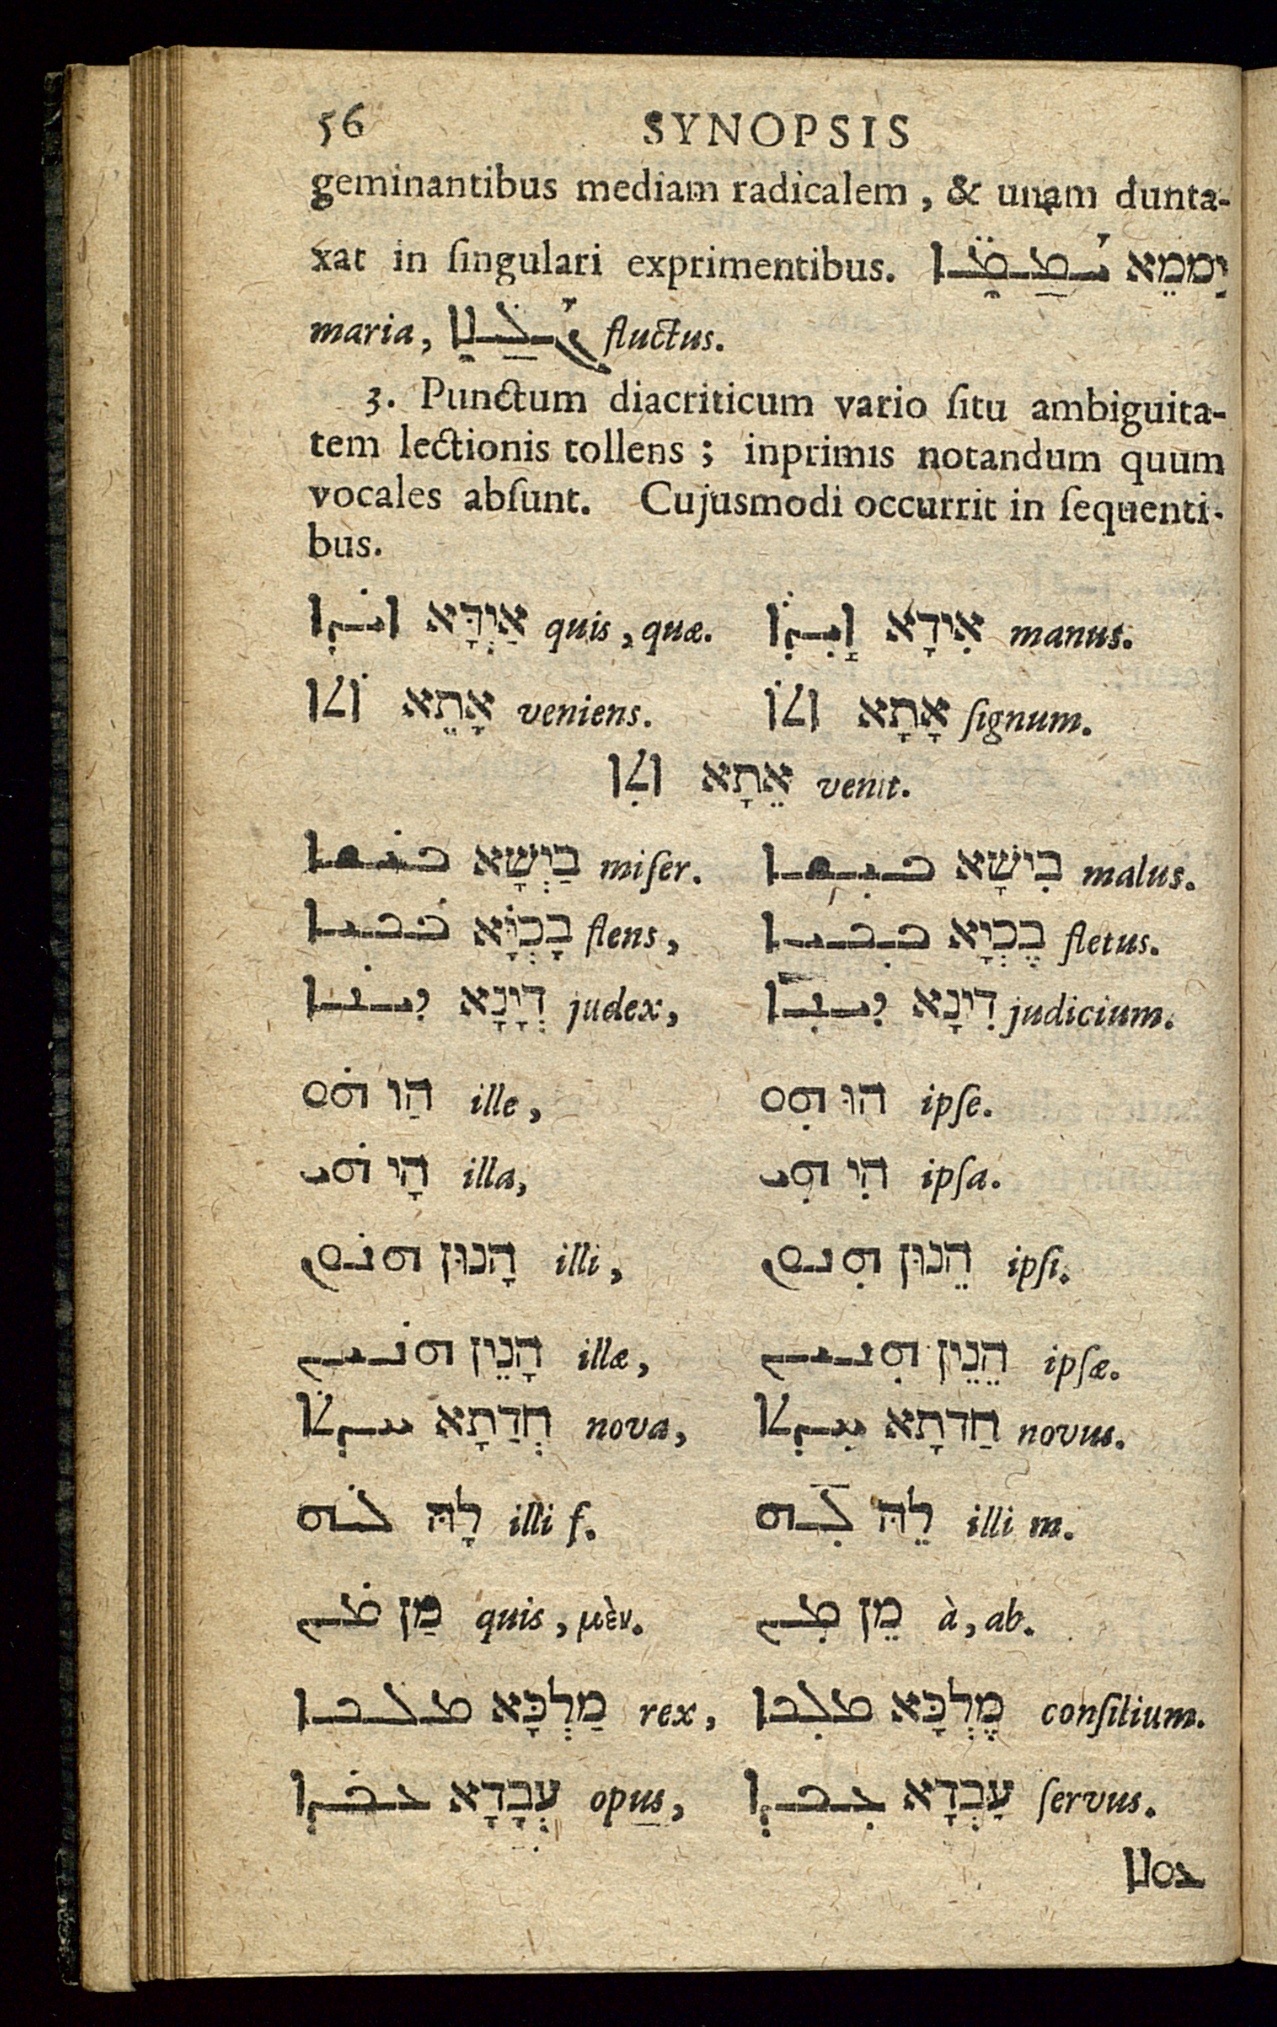 56 SYNOPSIS
geminantibus mediam radicalem, & unam dunta-
xat in ſingulari exprimentibus. יַממֵא ܝܡܡ̈ܐ
maria, ܓܠܠܐ fluctus.
3. Punctum diacriticum vario ſitu ambiguita-
tem lectionis tollens; inprimis notandum quum
vocales abſunt. Cujusmodi occurrit in ſequenti-
bus.
ܐܝܕܐ אַיְדָּא quis, quæ. ܐܝܕܐ אִידָא manus.
ܐܬܐ אָתֵא veniens. ܐܬܐ אָתָא ſignum.
ܐܬܐ אֵתָא venit.
ܒܝܫܐ בַּיְשָׁא miſer. ܒܝܫܐ בִישָׁא malus.
ܒܟܝܐ בָּכְיָּא flens, ܒܟܝܐ בֶּכְיָא fletus.
ܕܝܢܐ דְיָנָא judex, ܕܝܢܐ דִינָא judicium.
ܗܘ הַו ille, ܗܘ הוּ ipſe.
ܗܝ הָי illa, ܗܝ הִי ipſa.
ܗܢܘܢ הָנוּן illi, ܗܢܘܢ הֵנוּן ipſi.
ܗܢܝܢ הָנֵין illæ, ܗܢܝܢ הֵנֵין ipſæ.
ܚܕܬܐ חְדַתָא nova, ܚܕܬܐ חַדתָא novus.
ܠܗ לָהּ illi f. ܠܗ לֵהּ illi m.
ܡܢ מַן quis, μὲν. ܡܢ מֵן à, ab.
ܡܠܟܐ מַלְכָּא rex, ܡܠܟܐ מֶלְכָּא conſilium.
ܥܒܕܐ עְבָדָא opus, ܥܒܕܐ עַבְדָא ſervus.
ܥܘܠܐ